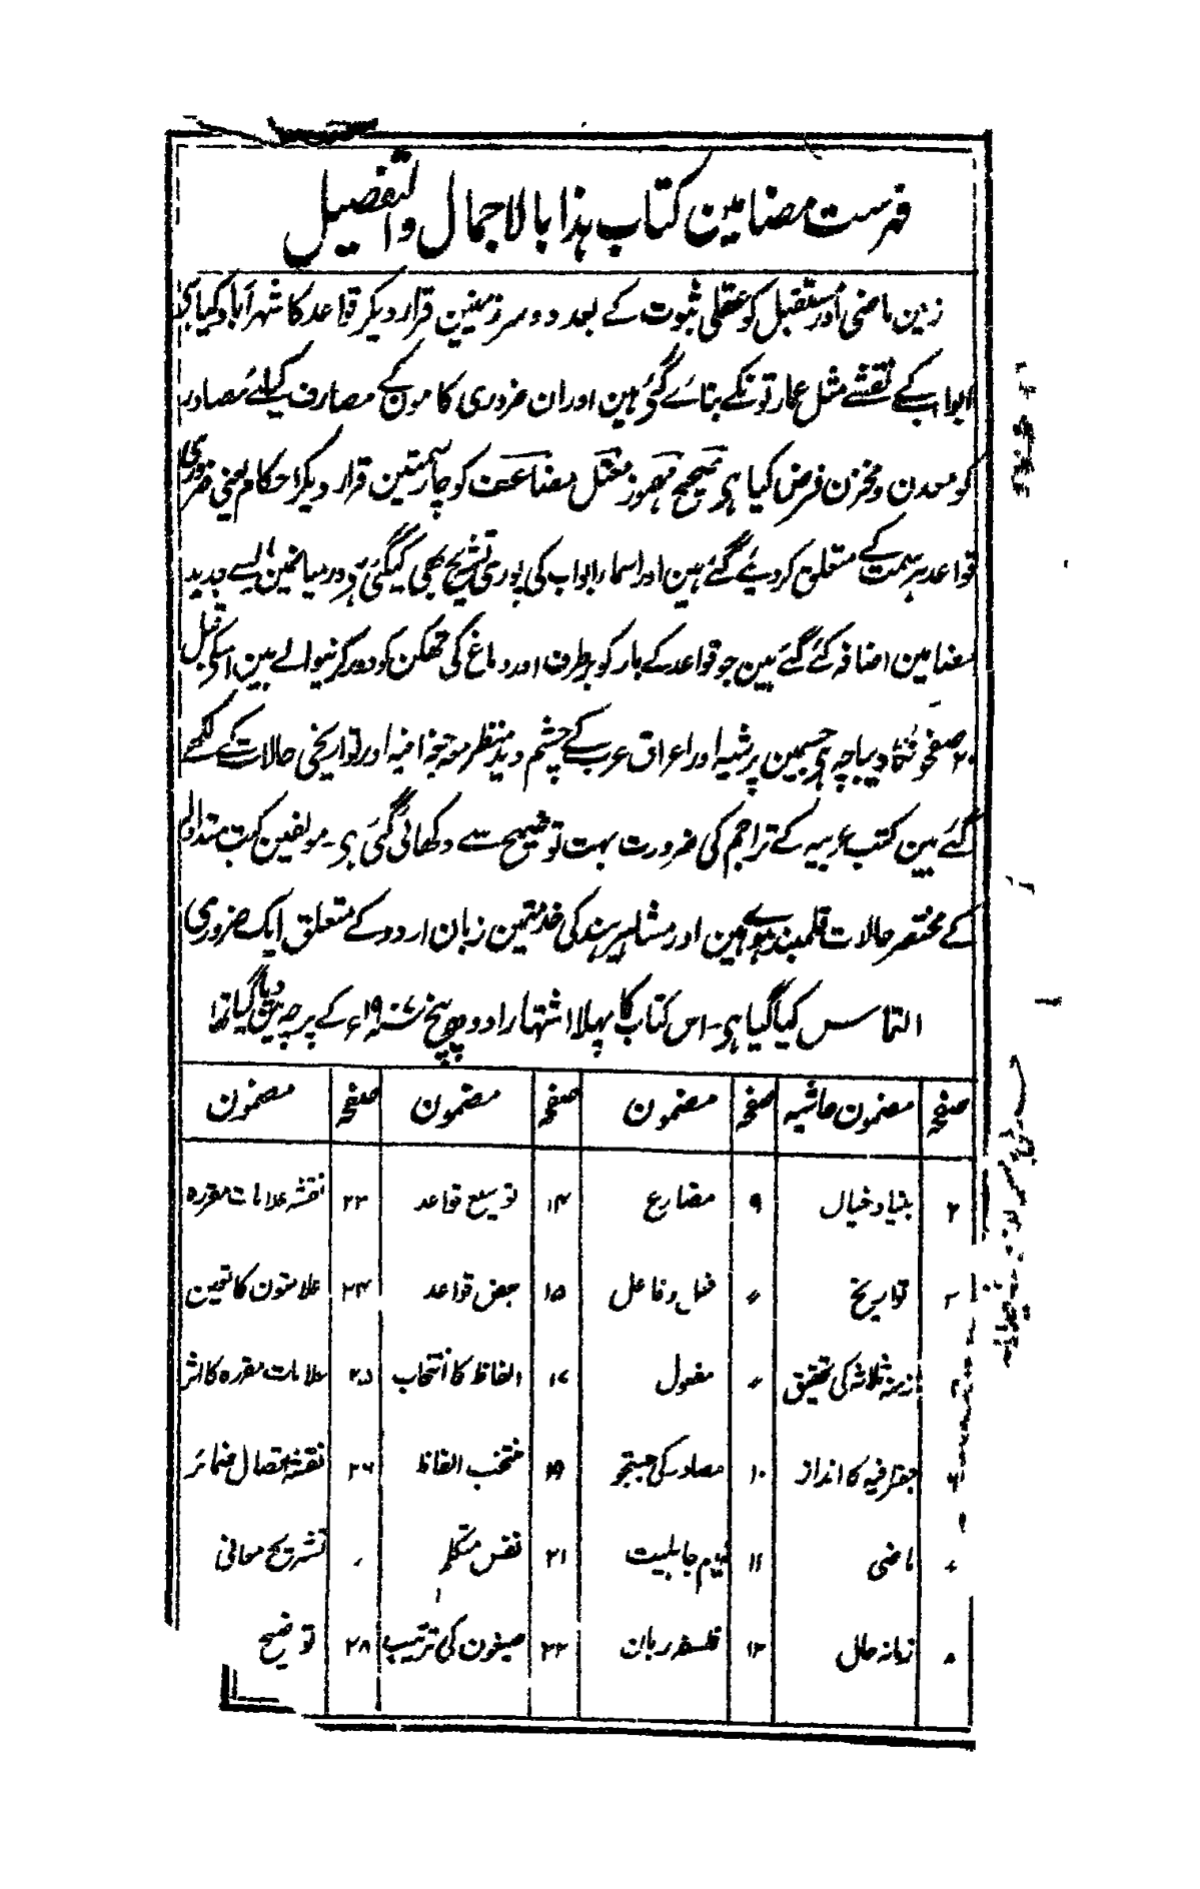 فہرست مضامین کتاب ہذا بالاجمال والتفصیل
زمین ماضی اور مستقبل کو عقلی ثبوت کے بعد دو سرزمینین قرار دیکر قاعد کا شہر آباد کیا ہی
ابواب کے نقشے مثل عمارتونکے بنائے گئے ہین اور ان ضروری کامون کے مصارف کیلئے مصادر
کو معدن و مخزن فرض کیا ہی صحیح مہموز معتل مضاعف کو چار سمتین قرار دیکر احکام یعنی ضروری
قواعد ہر سمت کے متعلق کر دیئے گئے ہین اور اسما و ابواب کی پوری تشریح بھی کیگئی ہی درمیانمین ایسے جدید
مضامین اضافہ کئے گئے ہین جو قواعد کے بار کو برطرف اور دماغ کی تھکن کو دور کرنیوالے ہین اسکے قبل
۲۰ صفحونکا دیباچہ ہی جسمین پرشیہ اور اعراق عرب کے چشم دید منظر مع جغرافیہ اور تواریخی حالات کے لکھے
گئے ہین کتب عربیہ کے تراجم کی ضرورت بہت توضیح سے دکھائی گئی ہی۔ مولفین کتب متداولہ
کے مختصر حالات قلمبند ہوے ہین اور مشاہیر ہند کی خدمتین زبان اردو کے متعلق ایک ضروری
التماس کیا گیا ہی۔ اس کتاب کا پہلا اشتہار اودھ پنچ ۱۹۰۷ء کے پرچہ مین دیا گیا تھا
صفحہ مضمون حاشیہ صفحہ مضمون صفحہ مضمون صفحہ مضمون
۲ بنیاد خیال ۹ مضارع ۱۴ توسیع قواعد ۲۳ نقشہ علامات مقررہ
۳ تواریخ 〃 فعل و فاعل ۱۵ بعض قواعد ۲۴ علامتون کا تعین
ازمنہ ثلاثہ کی تحقیق 〃 مفعول ۱۷ الفاظ کا انتخاب ۲۵ علامات مقررہ کا اثر
جغرافیہ کا انداز ۱۰ مصادر کی جستجو ۱۹ منتخب الفاظ ۲۶ نقشہ اتصال ضمائر
ماضی ۱۱ ایام جاہلیت ۲۱ نفس متکلم 〃 تشریح معانی
۸ زمانہ حال ۱۲ فلسفہ زبان ۲۲ صیغون کی ترتیب ۲۸ توضیح